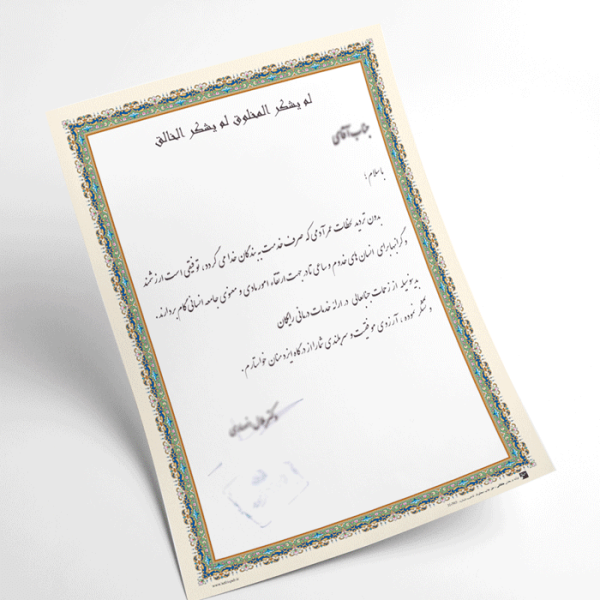 لم يشكر المخلوق لم يشكر الخالق
جناب آقای
با سلام؛
بدون تردید لحظات عمر آدمی که صرف خدمت به بندگان خدا می گردد، توفیقی است ارزشمند
و گرانبها برای انسان های خدوم و ساعی تا در جهت ارتقاء امور مادی و معنوی جامعه انسانی گام بردارند.
بدینوسیله از زحمات جنابعالی در ارائه خدمات درمانی رایگان
و تشکر نموده، آرزوی موفقیت و سربلندی شما را از درگاه ایزد منان خواستارم.
دکتر